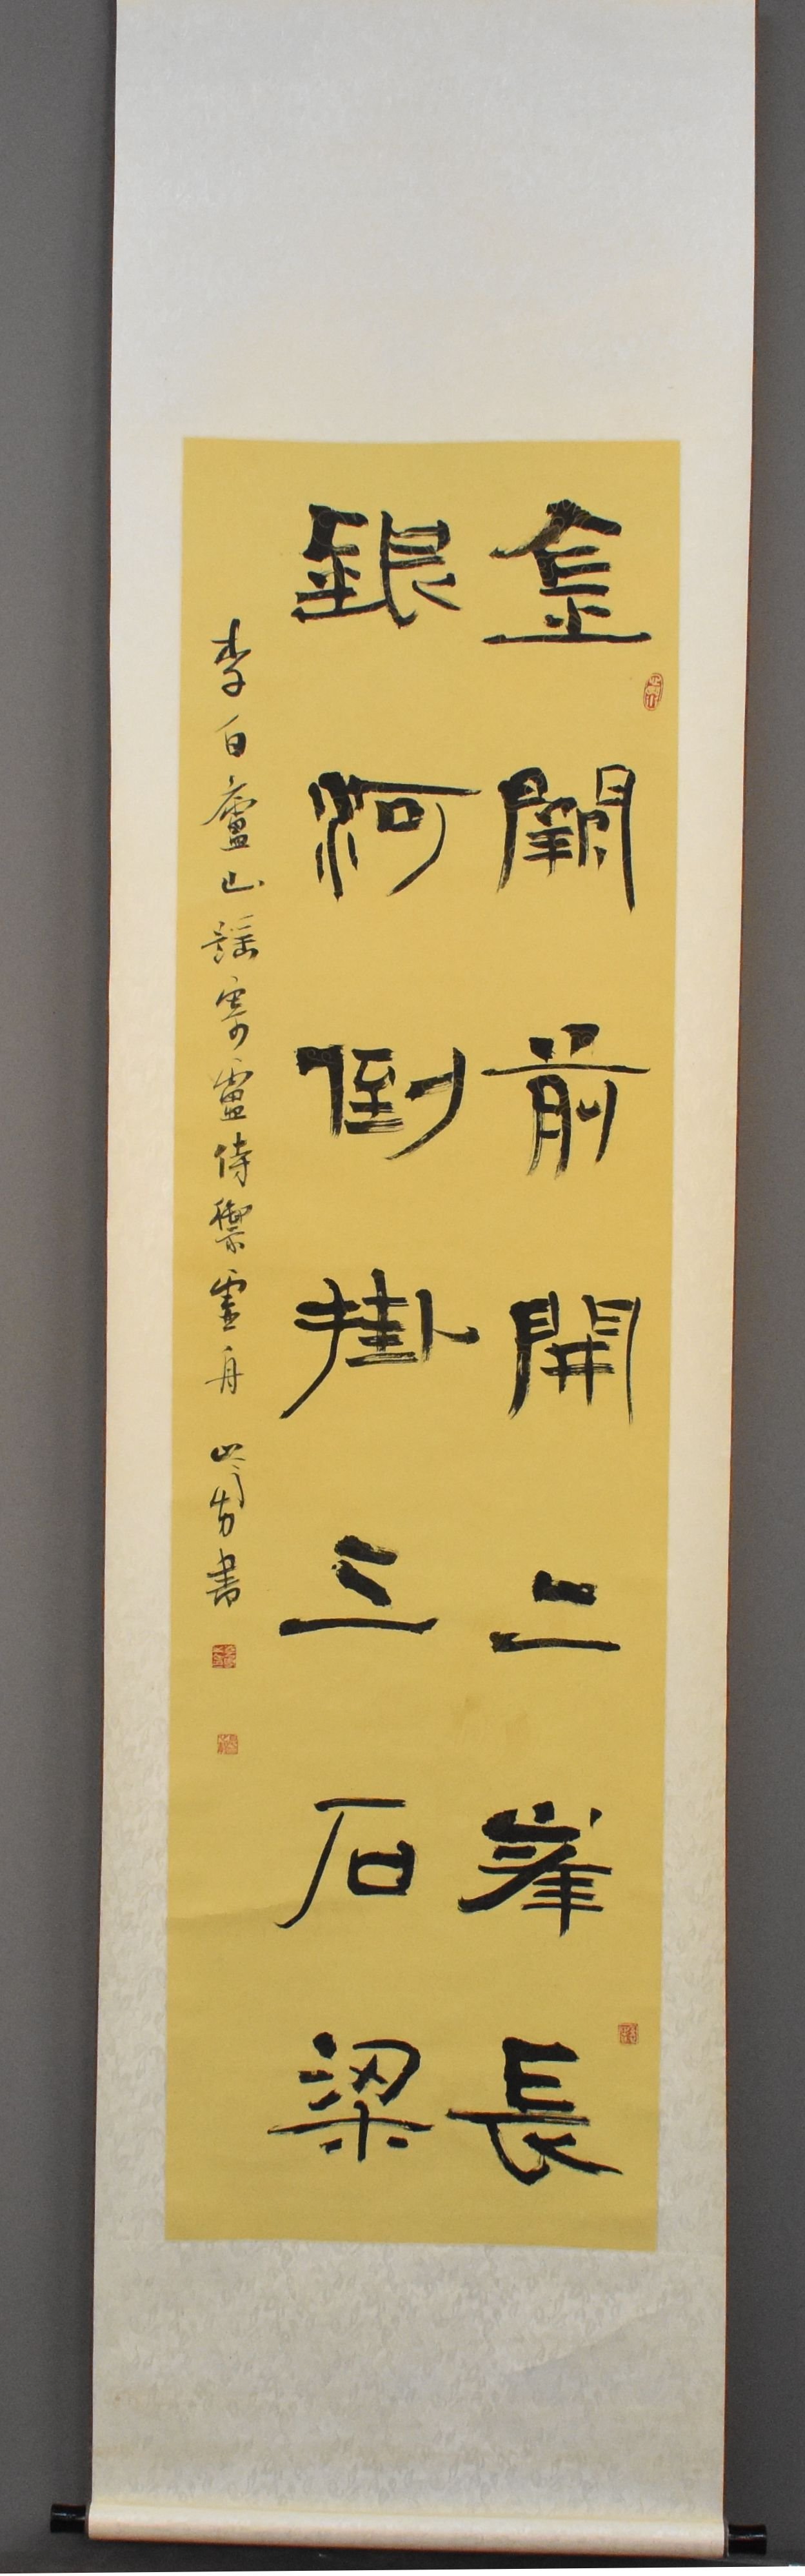 金闕前開二峯長
銀河倒掛三石梁
李白廬山謠寄盧侍御虛舟 書